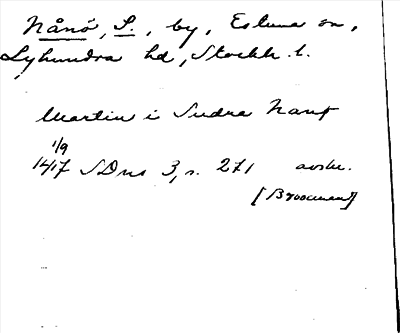 Nånö, S., by, Estuna sn,
Lyhundra hd, Stockh. l.
Martin i Sudra Nanø
1/9
1417 SDns 3, s. 271 avskr.
[Broocman]